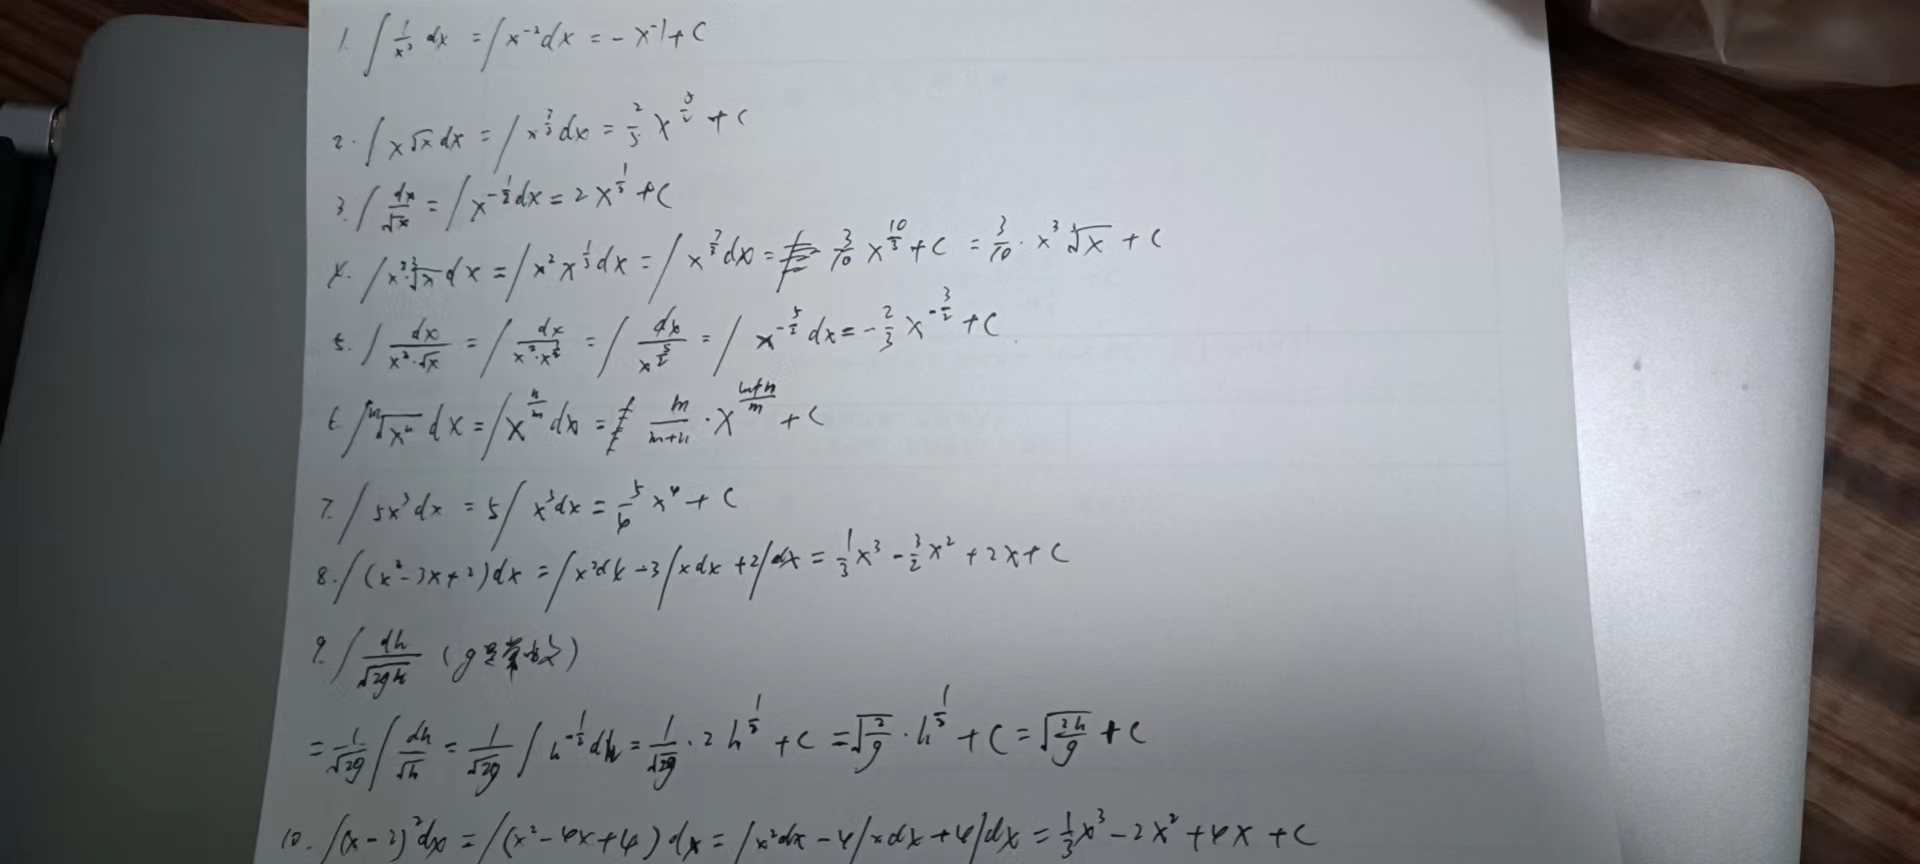 1. ∫ 1/x² dx = ∫ x⁻² dx = - x⁻¹ + C
2. ∫ x√x dx = ∫ x^(3/2) dx = 2/5 x^(5/2) + C
3. ∫ dx/√x = ∫ x^(-1/2) dx = 2 x^(1/2) + C
4. ∫ x²·³√x dx = ∫ x² x^(1/3) dx = ∫ x^(7/3) dx = 3/10 x^(10/3) + C = 3/10 · x³ ³√x + C
5. ∫ dx/(x²·√x) = ∫ dx/(x²·x^(1/2)) = ∫ dx/x^(5/2) = ∫ x^(-5/2) dx = - 2/3 x^(-3/2) + C
6. ∫ ᵐ√(xⁿ) dx = ∫ x^(n/m) dx = m/(m+n) · x^((m+n)/m) + C
7. ∫ 5x³ dx = 5 ∫ x³ dx = 5/4 x⁴ + C
8. ∫ (x² - 3x + 2) dx = ∫ x² dx - 3 ∫ x dx + 2 ∫ dx = 1/3 x³ - 3/2 x² + 2x + C
9. ∫ dh/√(2gh) (g是常数)
= 1/√(2g) ∫ dh/√h = 1/√(2g) ∫ h^(-1/2) dh = 1/√(2g) · 2 h^(1/2) + C = √(2/g) · h^(1/2) + C = √(2h/g) + C
10. ∫ (x - 2)² dx = ∫ (x² - 4x + 4) dx = ∫ x² dx - 4 ∫ x dx + 4 ∫ dx = 1/3 x³ - 2x² + 4x + C